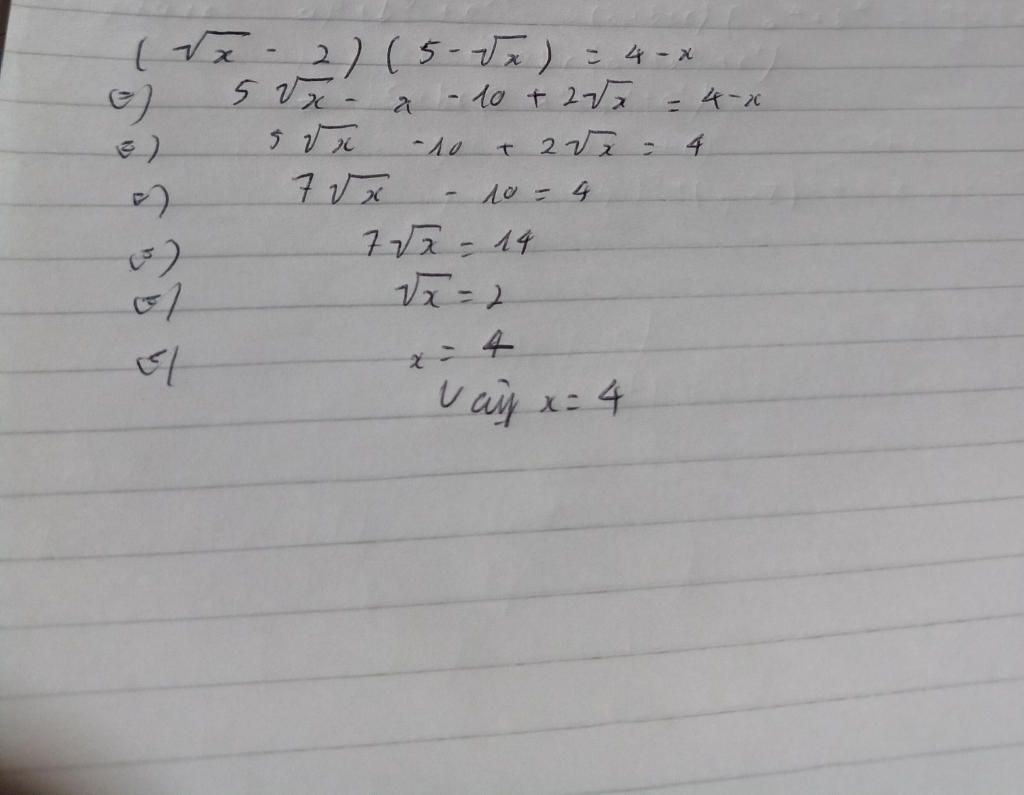 (√x - 2)(5-√x) = 4-x
⇔) 5√x - x - 10 + 2√x = 4-x
⇔) 5√x -10 + 2√x = 4
⇔) 7√x - 10 = 4
⇔) 7√x = 14
⇔) √x = 2
⇔) x = 4
Vậy x = 4